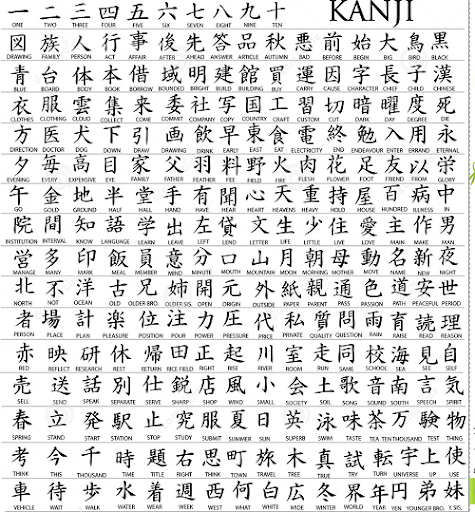 一 二 三 四 五 六 七 八 九 十 KANJI
ONE TWO THREE FOUR FIVE SIX SEVEN EIGHT NINE TEN
図 族 人 行 事 後 先 答 品 秋 悪 前 始 大 鳥 黒
DRAWING FAMILY PERSON ACT AFFAIR AFTER AHEAD ANSWER ARTICLE AUTUMN BAD BEFORE BEGIN BIG BIRD BLACK
青 台 体 本 借 域 明 建 館 買 運 因 字 長 子 漢
BLUE BOARD BODY BOOK BORROW BOUNDED BRIGHT BUILD BUILDING BUY CARRY CAUSE CHARACTER CHIEF CHILD CHINESE
衣 服 雲 集 来 委 社 写 国 工 習 切 暗 曜 度 死
CLOTHES CLOTHING CLOUD COLLECT COME COMMIT COMPANY COPY COUNTRY CRAFT CUSTOM CUT DARK DAY DEGREE DIE
方 医 犬 下 引 画 飲 早 東 食 電 終 勉 入 用 永
DIRECTION DOCTOR DOG DOWN DRAW DRAWING DRINK EARLY EAST EAT ELECTRICITY END ENDEAVOUR ENTER ERRAND ETERNAL
夕 毎 高 目 家 父 羽 料 野 火 肉 花 足 友 以 学
EVENING EVERY EXPENSIVE EYE FAMILY FATHER FEATHER FEE FIELD FIRE FLESH FLOWER FOOT FRIEND FROM GLORY
午 金 地 半 堂 手 有 聞 心 天 重 持 屋 百 病 中
GO GOLD GROUND HALF HALL HAND HAVE HEAR HEART HEAVENS HEAVY HOLD HOUSE HUNDRED ILLNESS IN
院 間 知 語 学 出 左 貸 文 生 少 住 愛 主 作 男
INSTITUTION INTERVAL KNOW LANGUAGE LEARN LEAVE LEFT LEND LETTER LIFE LITTLE LIVE LOVE MAIN MAKE MAN
営 多 印 飯 員 意 分 口 山 月 朝 母 動 名 新 夜
MANAGE MANY MARK MEAL MEMBER MIND MINUTE MOUTH MOUNTAIN MOON MORNING MOTHER MOVE NAME NEW NIGHT
北 不 洋 古 兄 姉 開 元 外 紙 親 通 色 道 安 世
NORTH NOT OCEAN OLD OLDER BRO. OLDER SIS. OPEN ORIGIN OUTSIDE PAPER PARENT PASS PASSION PATH PEACEFUL PERIOD
者 場 計 楽 位 注 力 圧 代 私 質 問 雨 育 読 理
PERSON PLACE PLAN PLEASURE POSITION POUR POWER PRESSURE PRICE PRIVATE QUALITY QUESTION RAIN RAISE READ REASON
赤 映 研 休 帰 田 正 起 川 室 走 同 校 海 見 自
RED REFLECT RESEARCH REST RETURN RICE FIELD RIGHT RISE RIVER ROOM RUN SAME SCHOOL SEA SEE SELF
売 送 話 別 仕 鋭 店 風 小 会 土 歌 音 南 言 気
SELL SEND SPEAK SEPARATE SERVE SHARP SHOP WIND SMALL SOCIETY SOIL SONG SOUND SOUTH SPEECH SPIRIT
春 立 発 駅 止 究 服 夏 日 英 泳 味 茶 万 験 物
SPRING STAND START STATION STOP STUDY SUBMIT SUMMER SUN SUPERB SWIM TASTE TEA TEN THOUSAND TEST THING
考 今 千 時 題 右 思 町 旅 木 真 試 転 宇 上 使
THINK THIS THOUSAND TIME TITLE RIGHT THINK TOWN TRAVEL TREE TRUE TRY TURN UNIVERSE UP USE
車 待 歩 水 着 週 西 何 白 広 冬 界 年 円 弟 妹
VEHICLE WAIT WALK WATER WEAR WEEK WEST WHAT WHITE WIDE WINTER WORLD YEAR YEN YOUNGER BRO. Y. SIS.